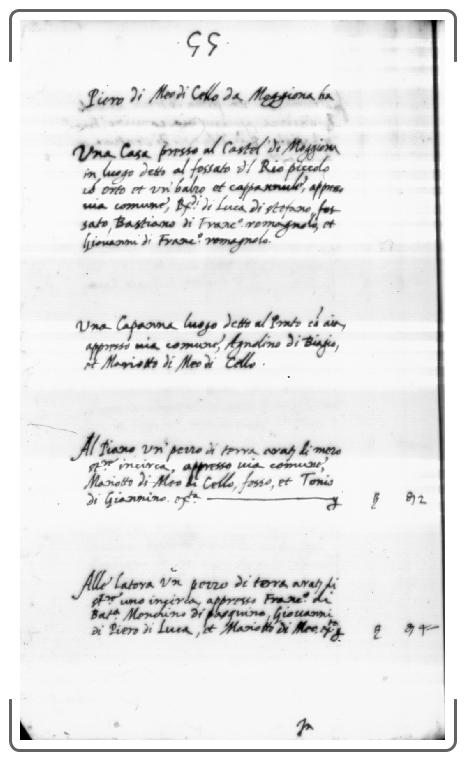 55
Piero di Meo di Cello da Moggiona ha
Una Casa presso al Castel di Moggiona
in luogo detto al fossato del Rio piccolo
cō orto et un balzo et capannuccie, appresso
via comune, di Luca di stefano, fos
sato, Bastiano di Franc.º romagnolo, et
Giovanni di Franc.º romagnolo.
Una Capanna luogo detto al Prato cō aia,
appresso via comune, Agnolino di Biagio,
et Mariotto di Meo di Cello.
Al Piano un pezzo di terra di mezo
incirca, appresso via comune,
Mariotto di Meo di Cello, fosso, et Tonio
di Giannino.
Alle Latora un pezzo di terra di
uno incirca, appresso Franc.º di
Bat.ª Mencino di pasquino, Giovanni
di Piero di Luca, et Mariotto di Meo